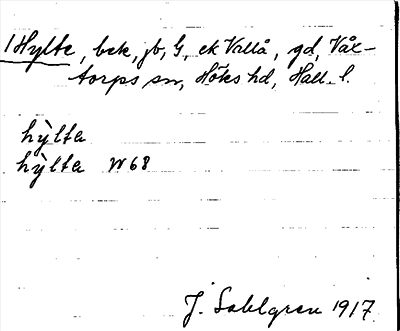 1 Hylte, bek, jb, G, ek Vallå, gd, Våx-
torps sn, Höks hd, Hall. l.
hỳlta
hỳlta W 68
J. Sahlgren 1917